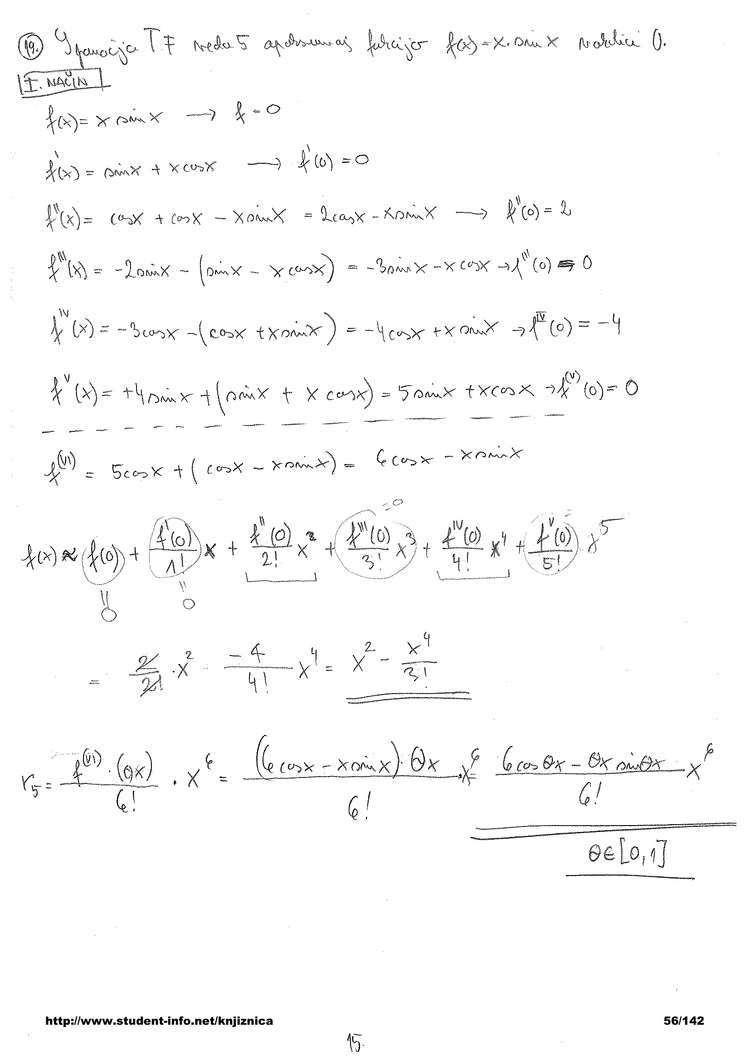 19. pomoću TF reda 5 funkciju f(x)=x·sinx 0.
I. NAČIN
f(x)= x sinx → f=0
f'(x)= sinx + xcosx → f'(0)=0
f''(x)= cosx + cosx - xsinx = 2cosx - xsinx → f''(0)=2
f'''(x)= -2sinx - (sinx - xcosx) = -3sinx - xcosx → f'''(0)=0
f^IV(x)= -3cosx - (cosx + xsinx) = -4cosx + xsinx → f^IV(0)=-4
f^V(x)= +4sinx + (sinx + xcosx) = 5sinx + xcosx → f^(V)(0)=0
f^(VI) = 5cosx + (cosx - xsinx) = 6cosx - xsinx
=0 =
f(x) ≈ f(0) + f'(0)/1! x + f''(0)/2! x² + f'''(0)/3! x³ + f^IV(0)/4! x⁴ + f^V(0)/5! x⁵
=0 =0
= 2/2! ·x² -4/4! x⁴ = x² - x⁴/3!
r₅ = f^(VI)·(θx)/6! · x⁶ = (6cosx - xsinx)·θx/6! ·x⁶ = 6cosθx - θx sinθx/6! x⁶
θ∈[0,1]
http://www.student-info.net/knjiznica 56/142
15.